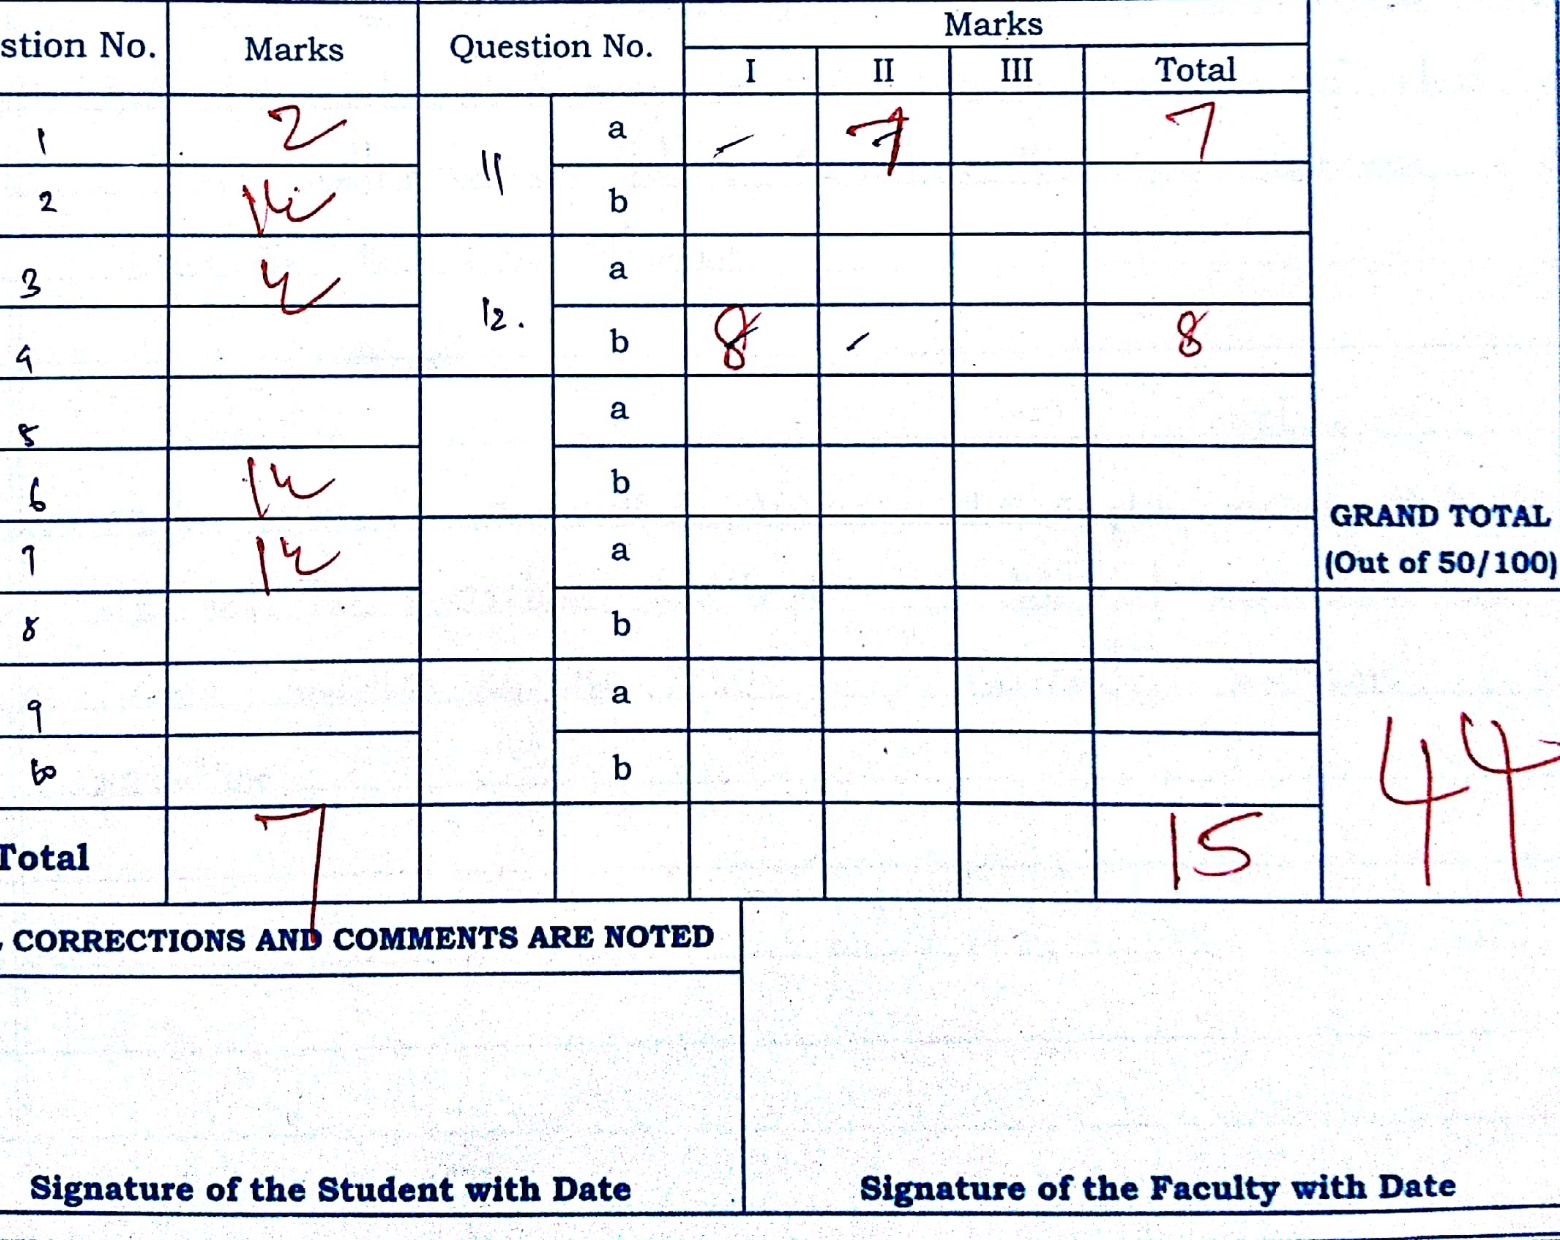 stion No. Marks Question No. Marks
I II III Total
1 2 11 a - 7 7
2 1½ b
3 ½ 12. a
4 b 8 - 8
5 a
6 1½ b
GRAND TOTAL
7 1½ a
(Out of 50/100)
8 b
9 a
10 b
44
Total 7 15
CORRECTIONS AND COMMENTS ARE NOTED
Signature of the Student with Date Signature of the Faculty with Date